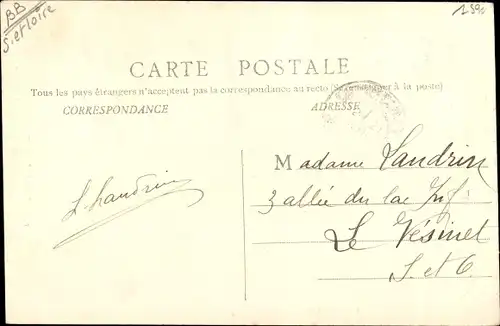 BB
S. et Loire
CARTE POSTALE
Tous les pays étrangers n'acceptent pas la correspondance au recto (Se renseigner à la poste)
CORRESPONDANCE
ADRESSE
L. Landrin
Madame Landrin
3 allée du lac Inf.
Le Vésinet
S. et O.